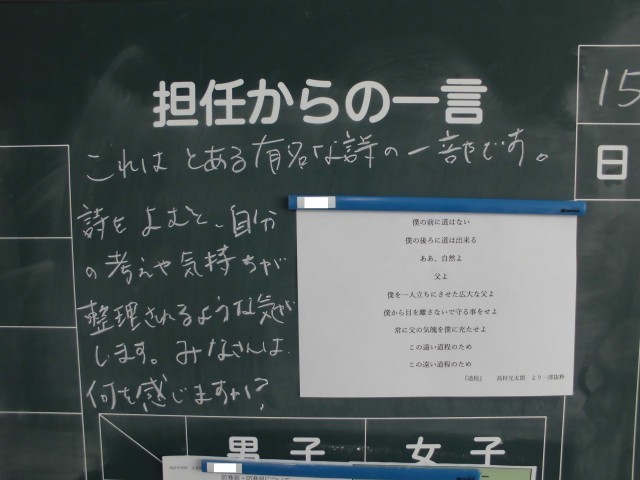 担任からの一言
これは とある有名な詩の一部です。
詩をよむと、自分
の考えや気持ちが
整理されるような気が
します。みなさんは
何を感じますか?
僕の前に道はない
僕の後ろに道は出来る
ああ、自然よ
父よ
僕を一人立ちにさせた広大な父よ
僕から目を離さないで守る事をせよ
常に父の気魄を僕に充たせよ
この遠い道程のため
この遠い道程のため
『道程』 高村光太郎 より一部抜粋
15
日
男子 女子